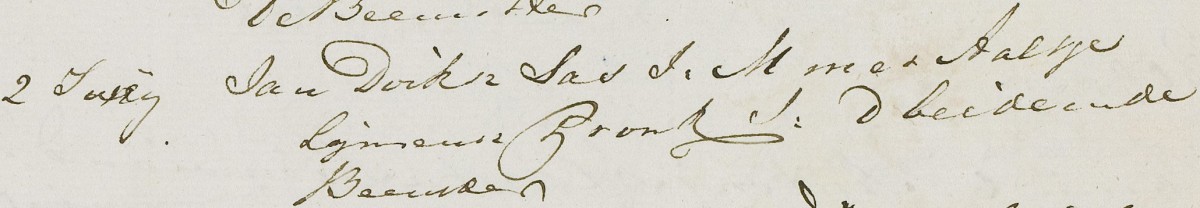 De Beemster
2 July Jan Dirkz Sas J: M met Aaltje
Sijmensz Bronk J: D beide in de
Beemster